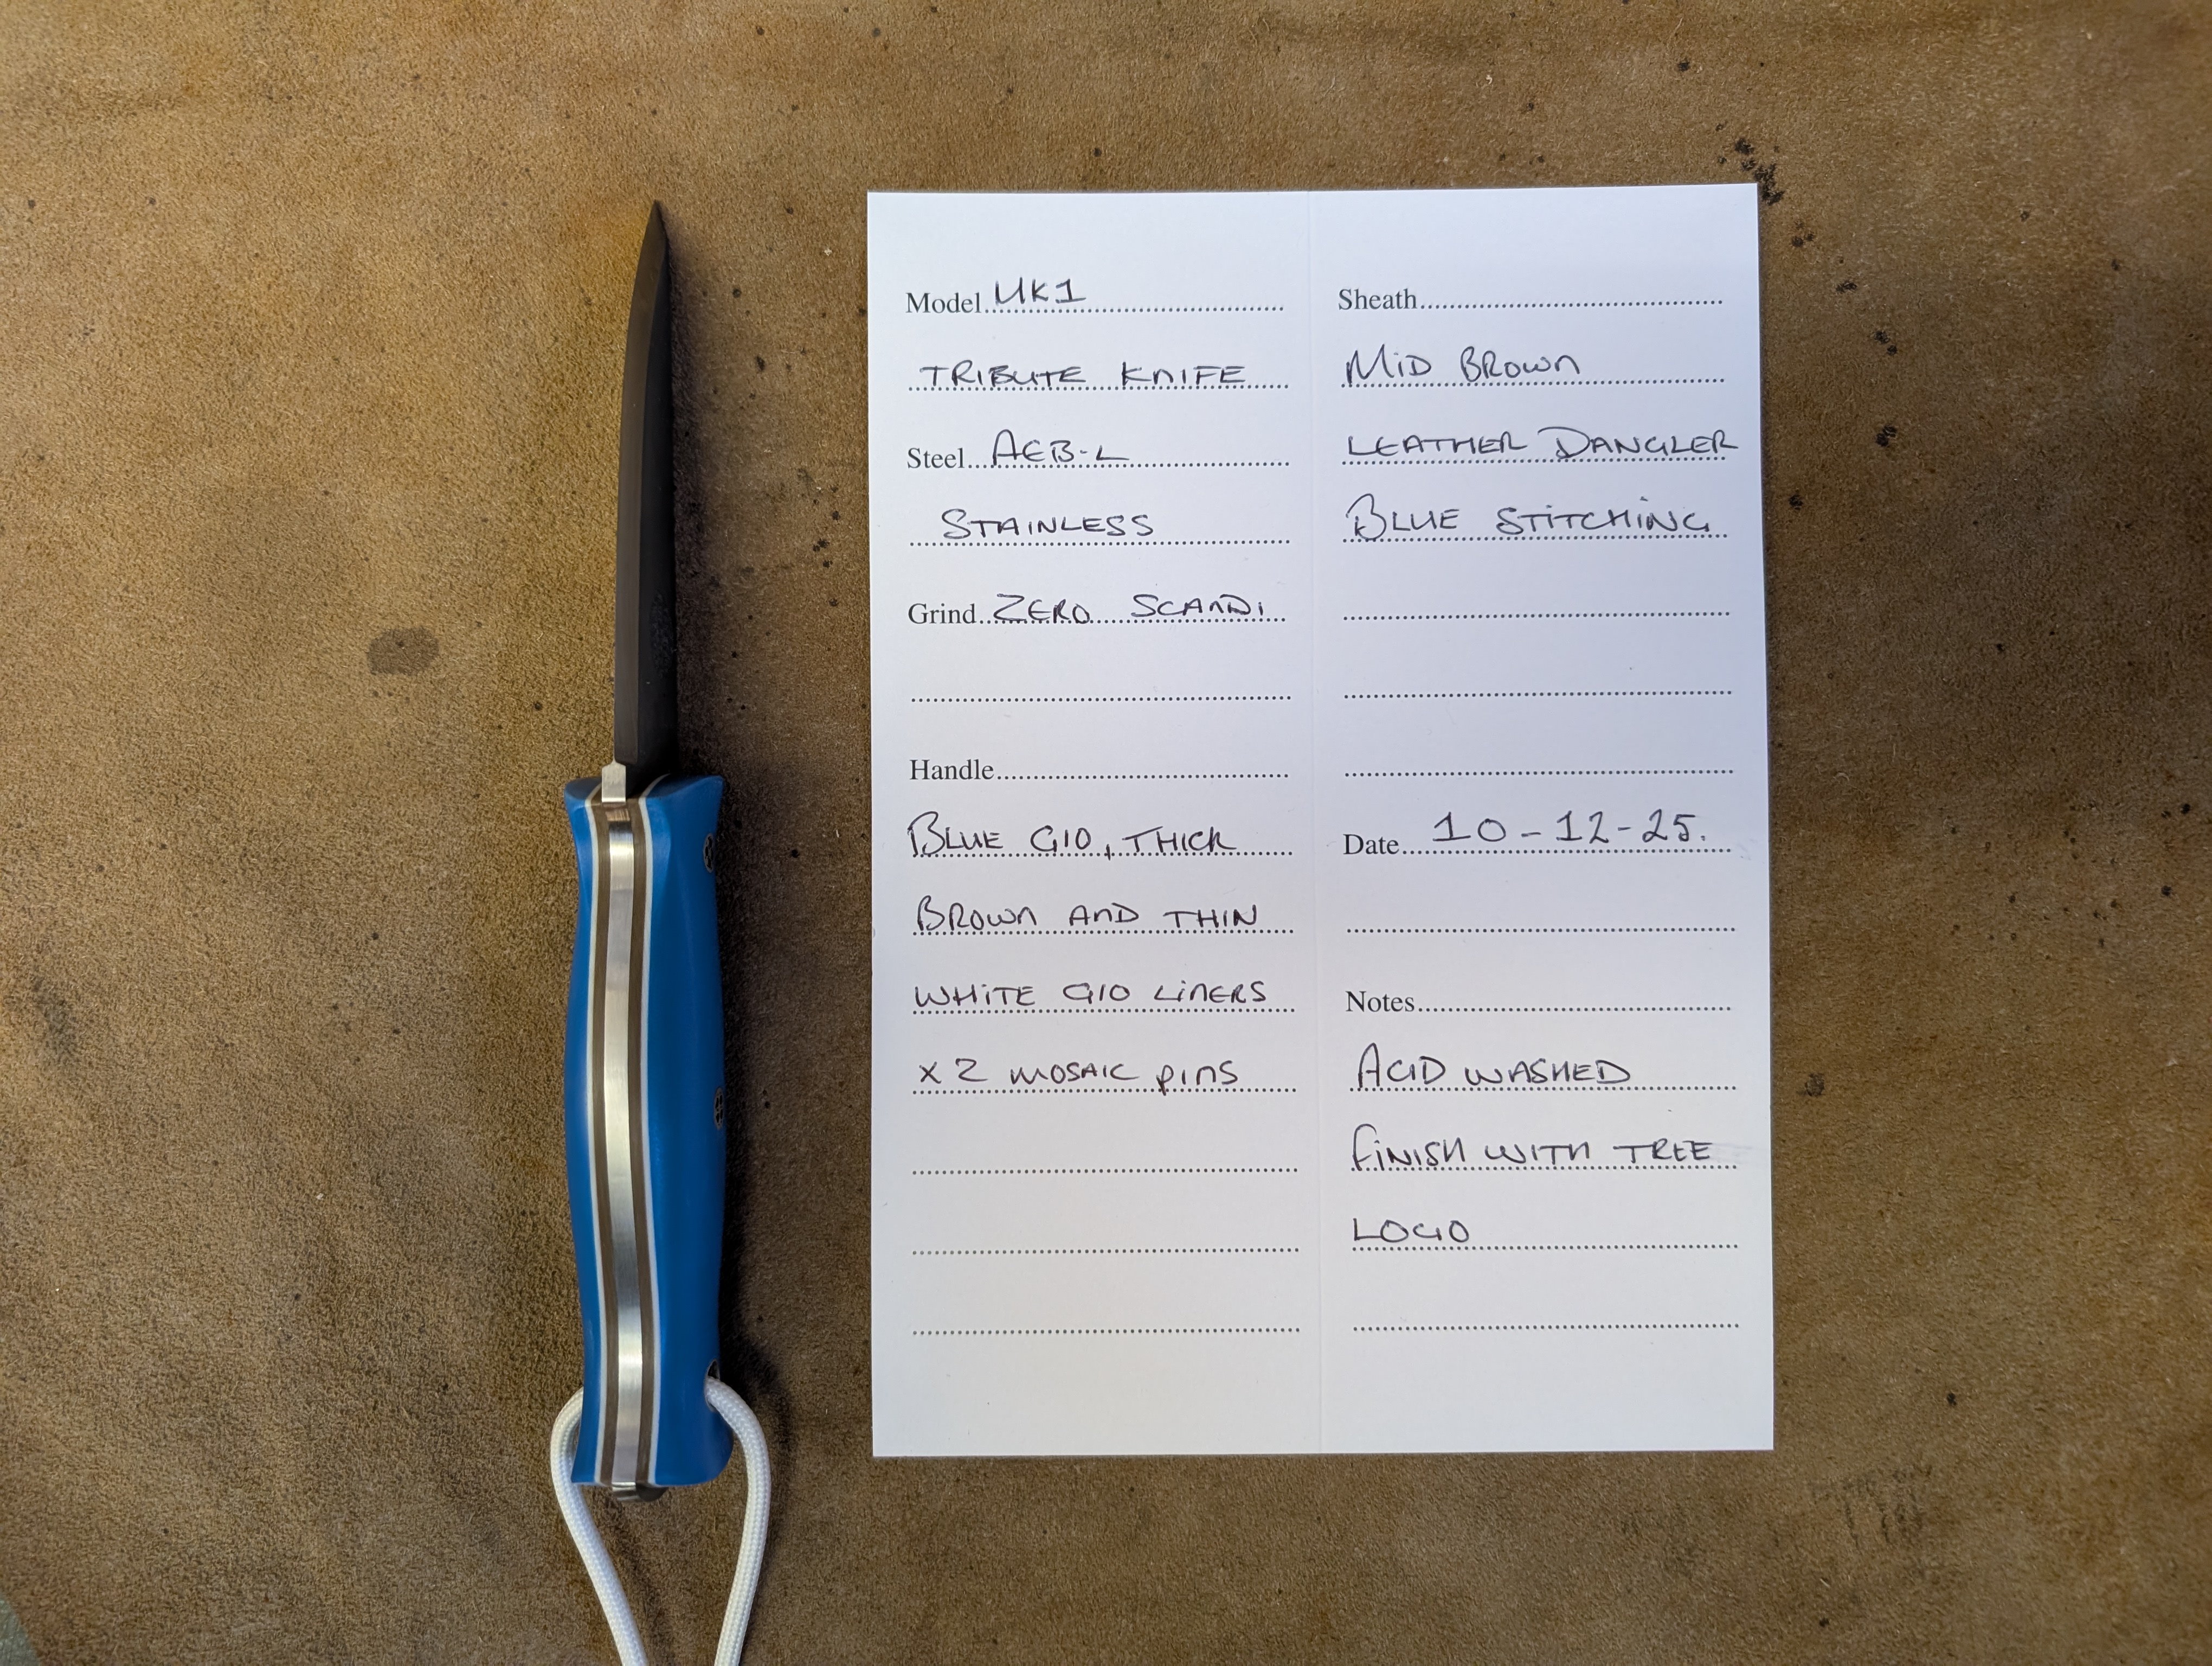 Model MK1
TRIBUTE KNIFE
Steel AEB-L
STAINLESS
Grind ZERO SCANDI
Handle
BLUE G10, THICK
BROWN AND THIN
WHITE G10 LINERS
x 2 MOSAIC PINS
Sheath
MID BROWN
LEATHER DANGLER
BLUE STITCHING
Date 10-12-25.
Notes
ACID WASHED
FINISH WITH TREE
LOGO